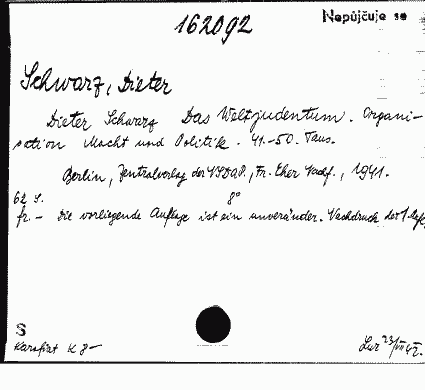 162092
Nepůjčuje se
Schwarz, Dieter
Dieter Schwarz Das Weltjudentum. Organi-
sation Macht und Politik. 41.-50. Taus.
Berlin, Zentralverlag der NSDAP., Fr. Eher Nachf., 1941.
62 S. 8°
fr. - Die vorliegende Auflage ist ein unveränder. Nachdruck der 1. Aufl.
S
K 8-